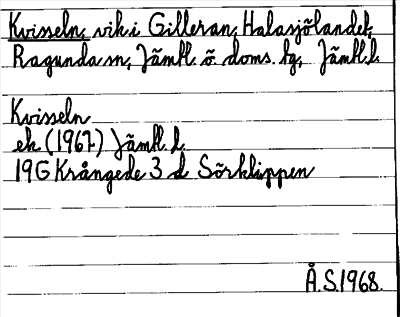 Kvisseln, vik i Gilleran, Halasjölandet,
Ragunda sn, Jämtl. ö. doms. tg, Jämtl. l.
Kvisseln
ek (1967) Jämtl. l.
19G Krångede 3 d Sörklippen
Å.S.1968.